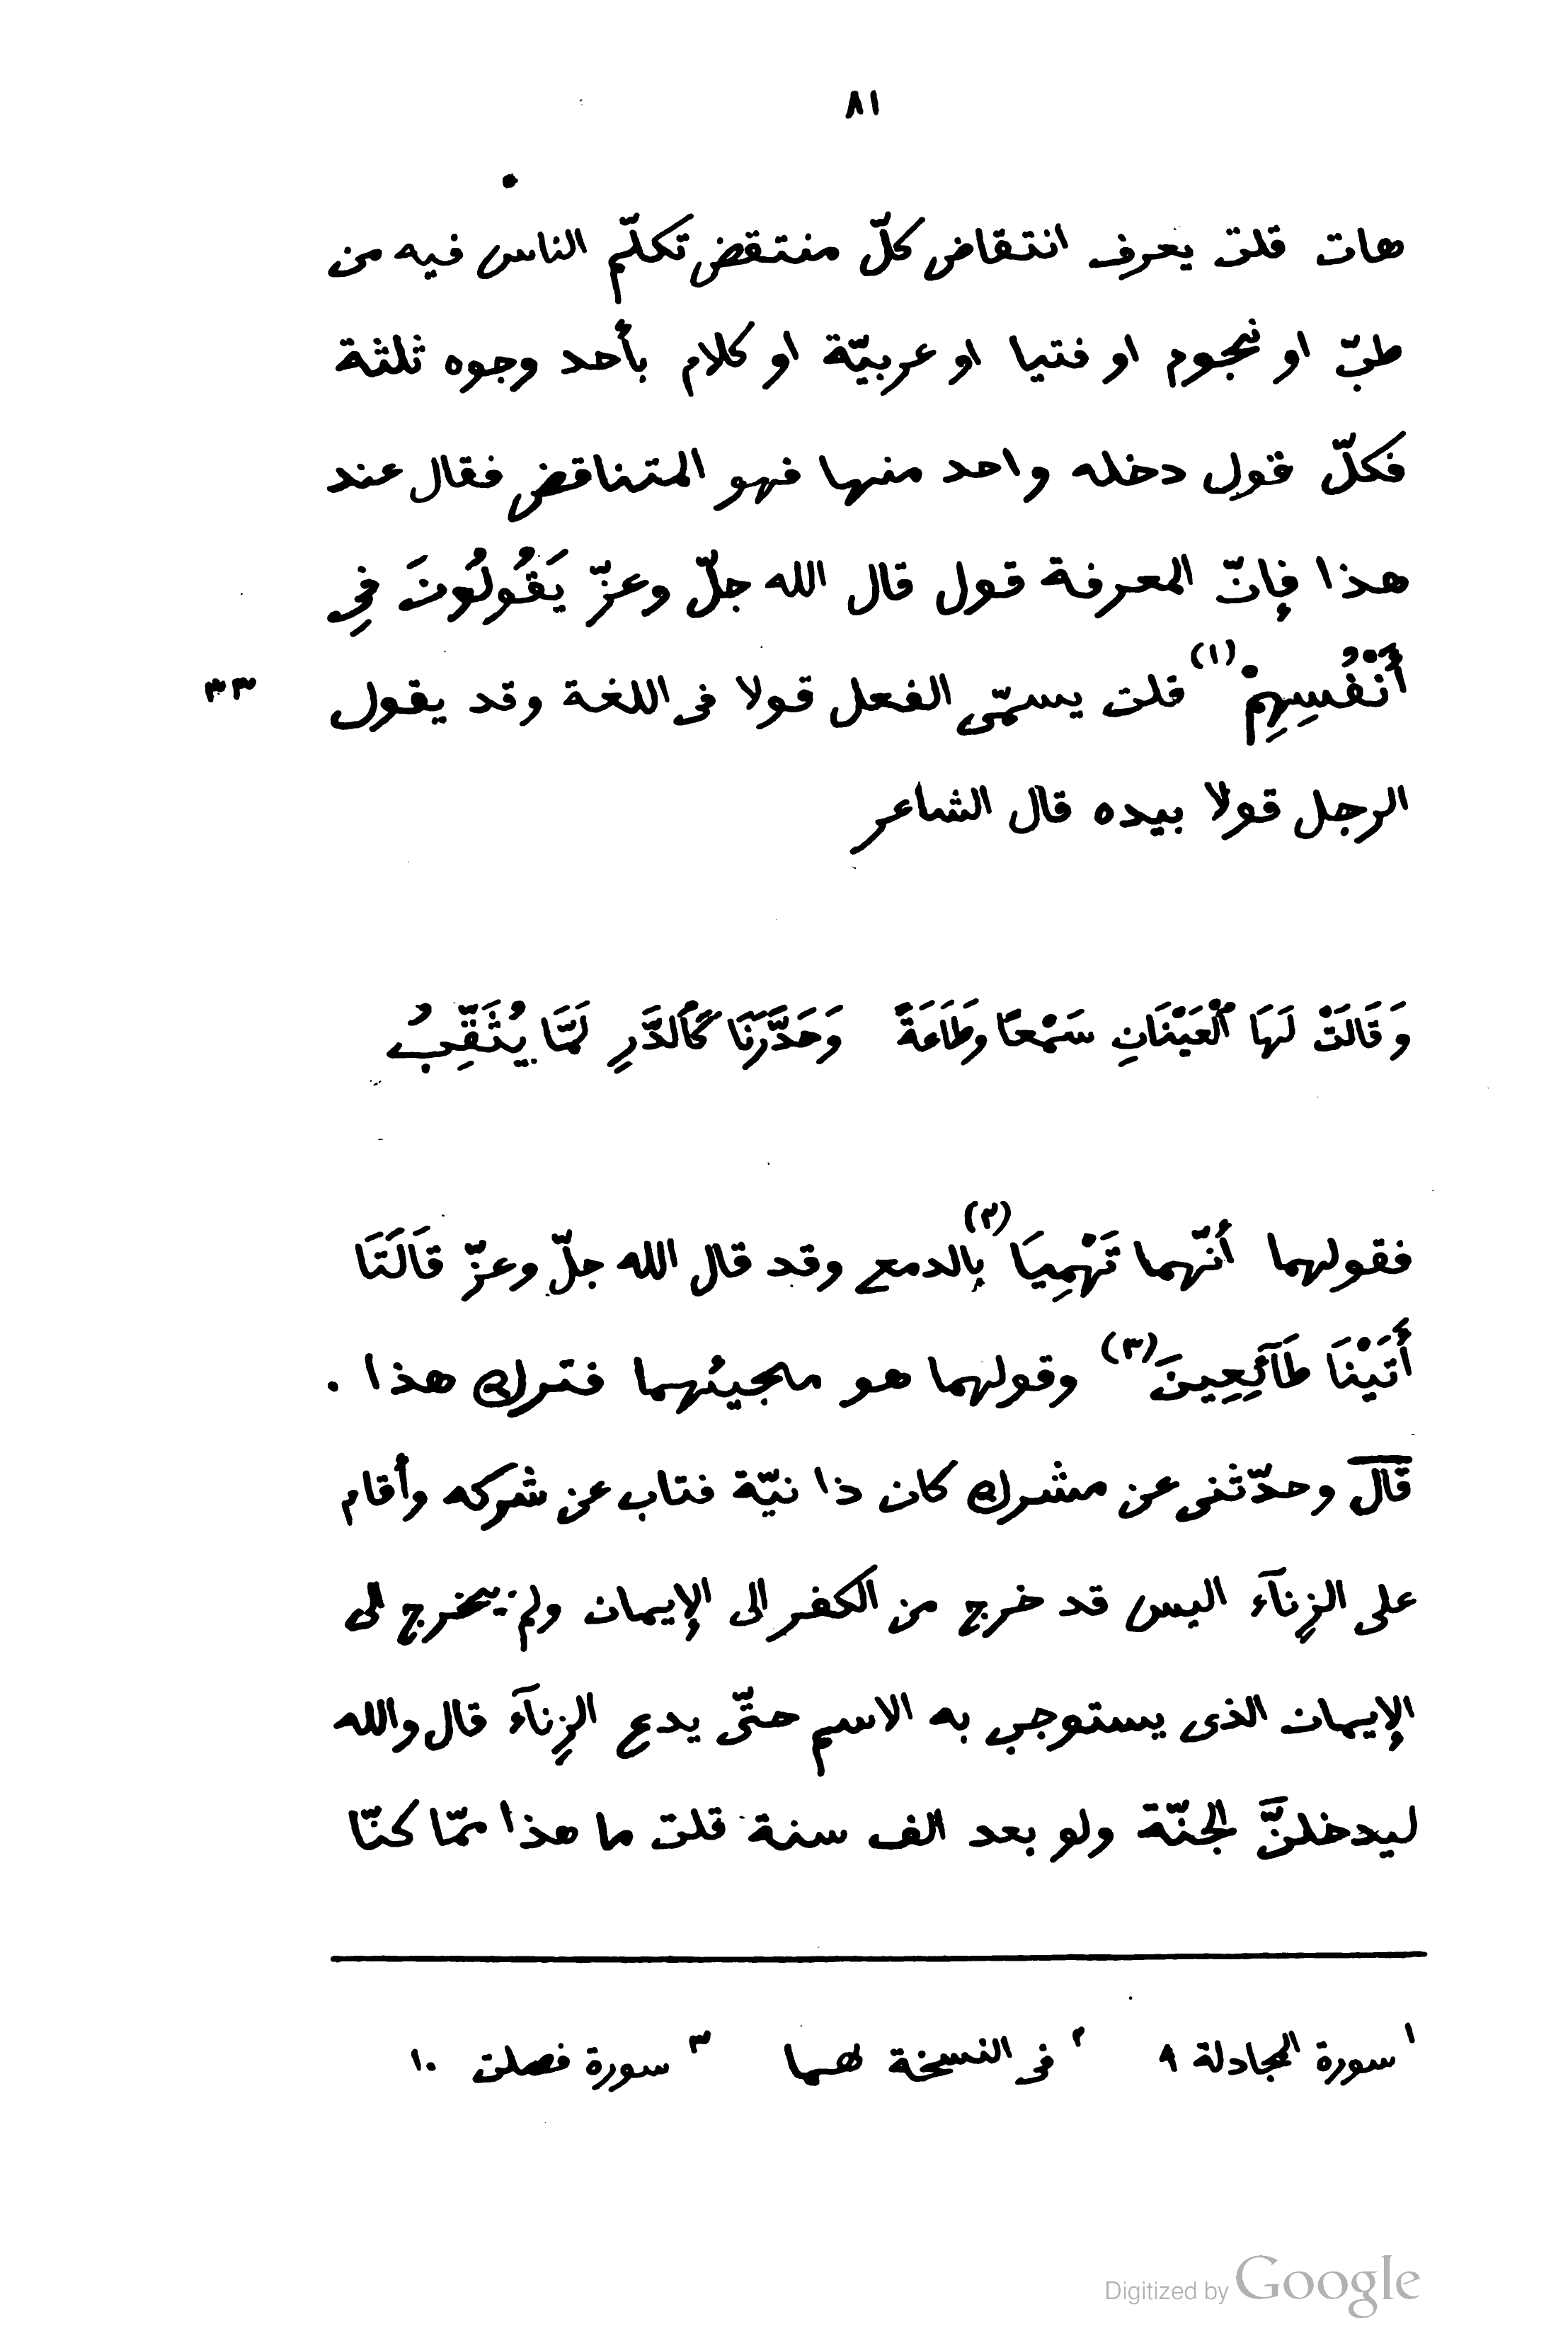 ٨١
هات قلت يعرف انتقاض كلّ منتقض تكلّم الناس فيه من
طبّ او نجوم او فتيا او عربيّة او كلام بأحد وجوه ثلثة
فكلّ قول دخله واحد منها فهو المتناقض فقال عند
هذا فإنّ المعرفة قول قال الله جلّ وعزّ يَقُولُونَ فِي
أَنْفُسِهِمْ (١) قلت يسمّى الفعل قولا فى اللغة وقد يقول ٣٣
الرجل قولا بيده قال الشاعر
وَقَالَتْ لَهَا ٱلْعَيْنَانِ سَمْعًا وطَاعَةً وَحَدَّرَتَا كَٱلدَّرِ لَمَّا يُثَقَّبُ
فقولهما أنّهما تَهْمِيَا (٢) بالدمع وقد قال الله جلّ وعزّ قَالَتَا
أَتَيْنَا طَآئِعِينَ (٣) وقولهما هو مجيئهما فترك هذا .
قال وحدّثنى عن مشرك كان ذا نيّة فتاب عن شركه وأقام
على الزِنآء اليس قد خرج من الكفر الى الإيمان ولم يخرج الى
الإيمان الذى يستوجب به الاسم حتّى يدع الزِنآء قال والله
ليدخلنَّ الجنّة ولو بعد الف سنة قلت ما هذا ممّا كنّا
١ سورة المجادلة ٩ ٢ فى النسخة لهما ٣ سورة فصلت ١٠
Digitized by Google